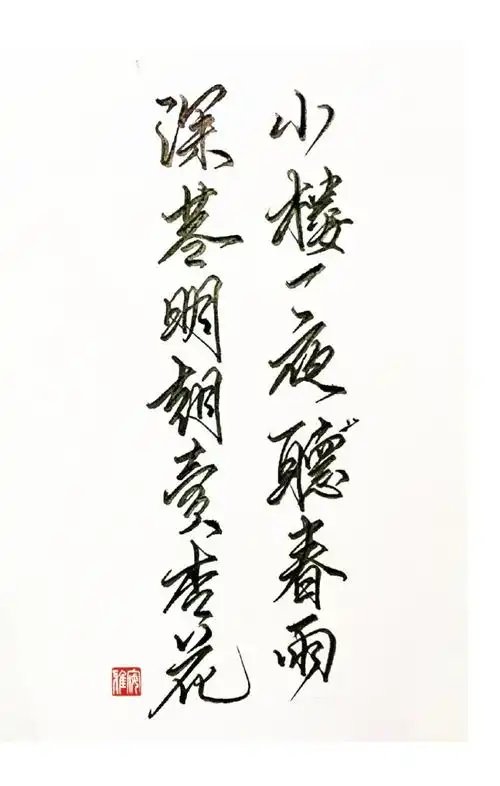 小楼一夜聽春雨
深巷明朝賣杏花